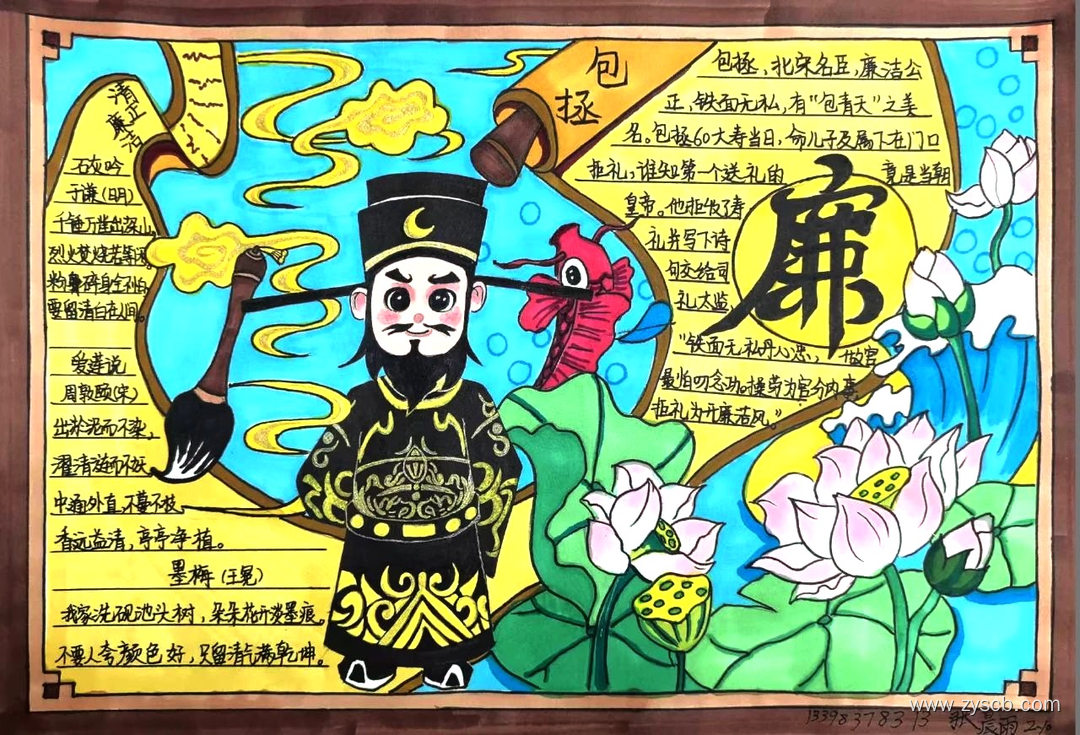 清正
廉洁
石灰吟
于谦(明)
千锤万凿出深山,
烈火焚烧若等闲。
粉骨碎身全不怕
要留清白在人间。
爱莲说
周敦颐(宋)
出淤泥而不染,
濯清涟而不妖
中通外直,不蔓不枝
香远益清,亭亭净植。
墨梅(王冕)
我家洗砚池头树,朵朵花开淡墨痕。
不要人夸颜色好,只留清气满乾坤。
包
拯
包拯,北宋名臣,廉洁公
正,铁面无私,有"包青天"之美
名。包拯60大寿当日,命儿子及属下在门口
拒礼,谁知第一个送礼的 竟是当朝
皇帝。他拒收了寿
礼并写下诗
句交给司
礼太监
"铁面无私丹心忠, 做官
最怕叨念功。操劳为官分内事
拒礼为开廉洁风。"
廉
www.zyscb.com
13398378313 张晨雨